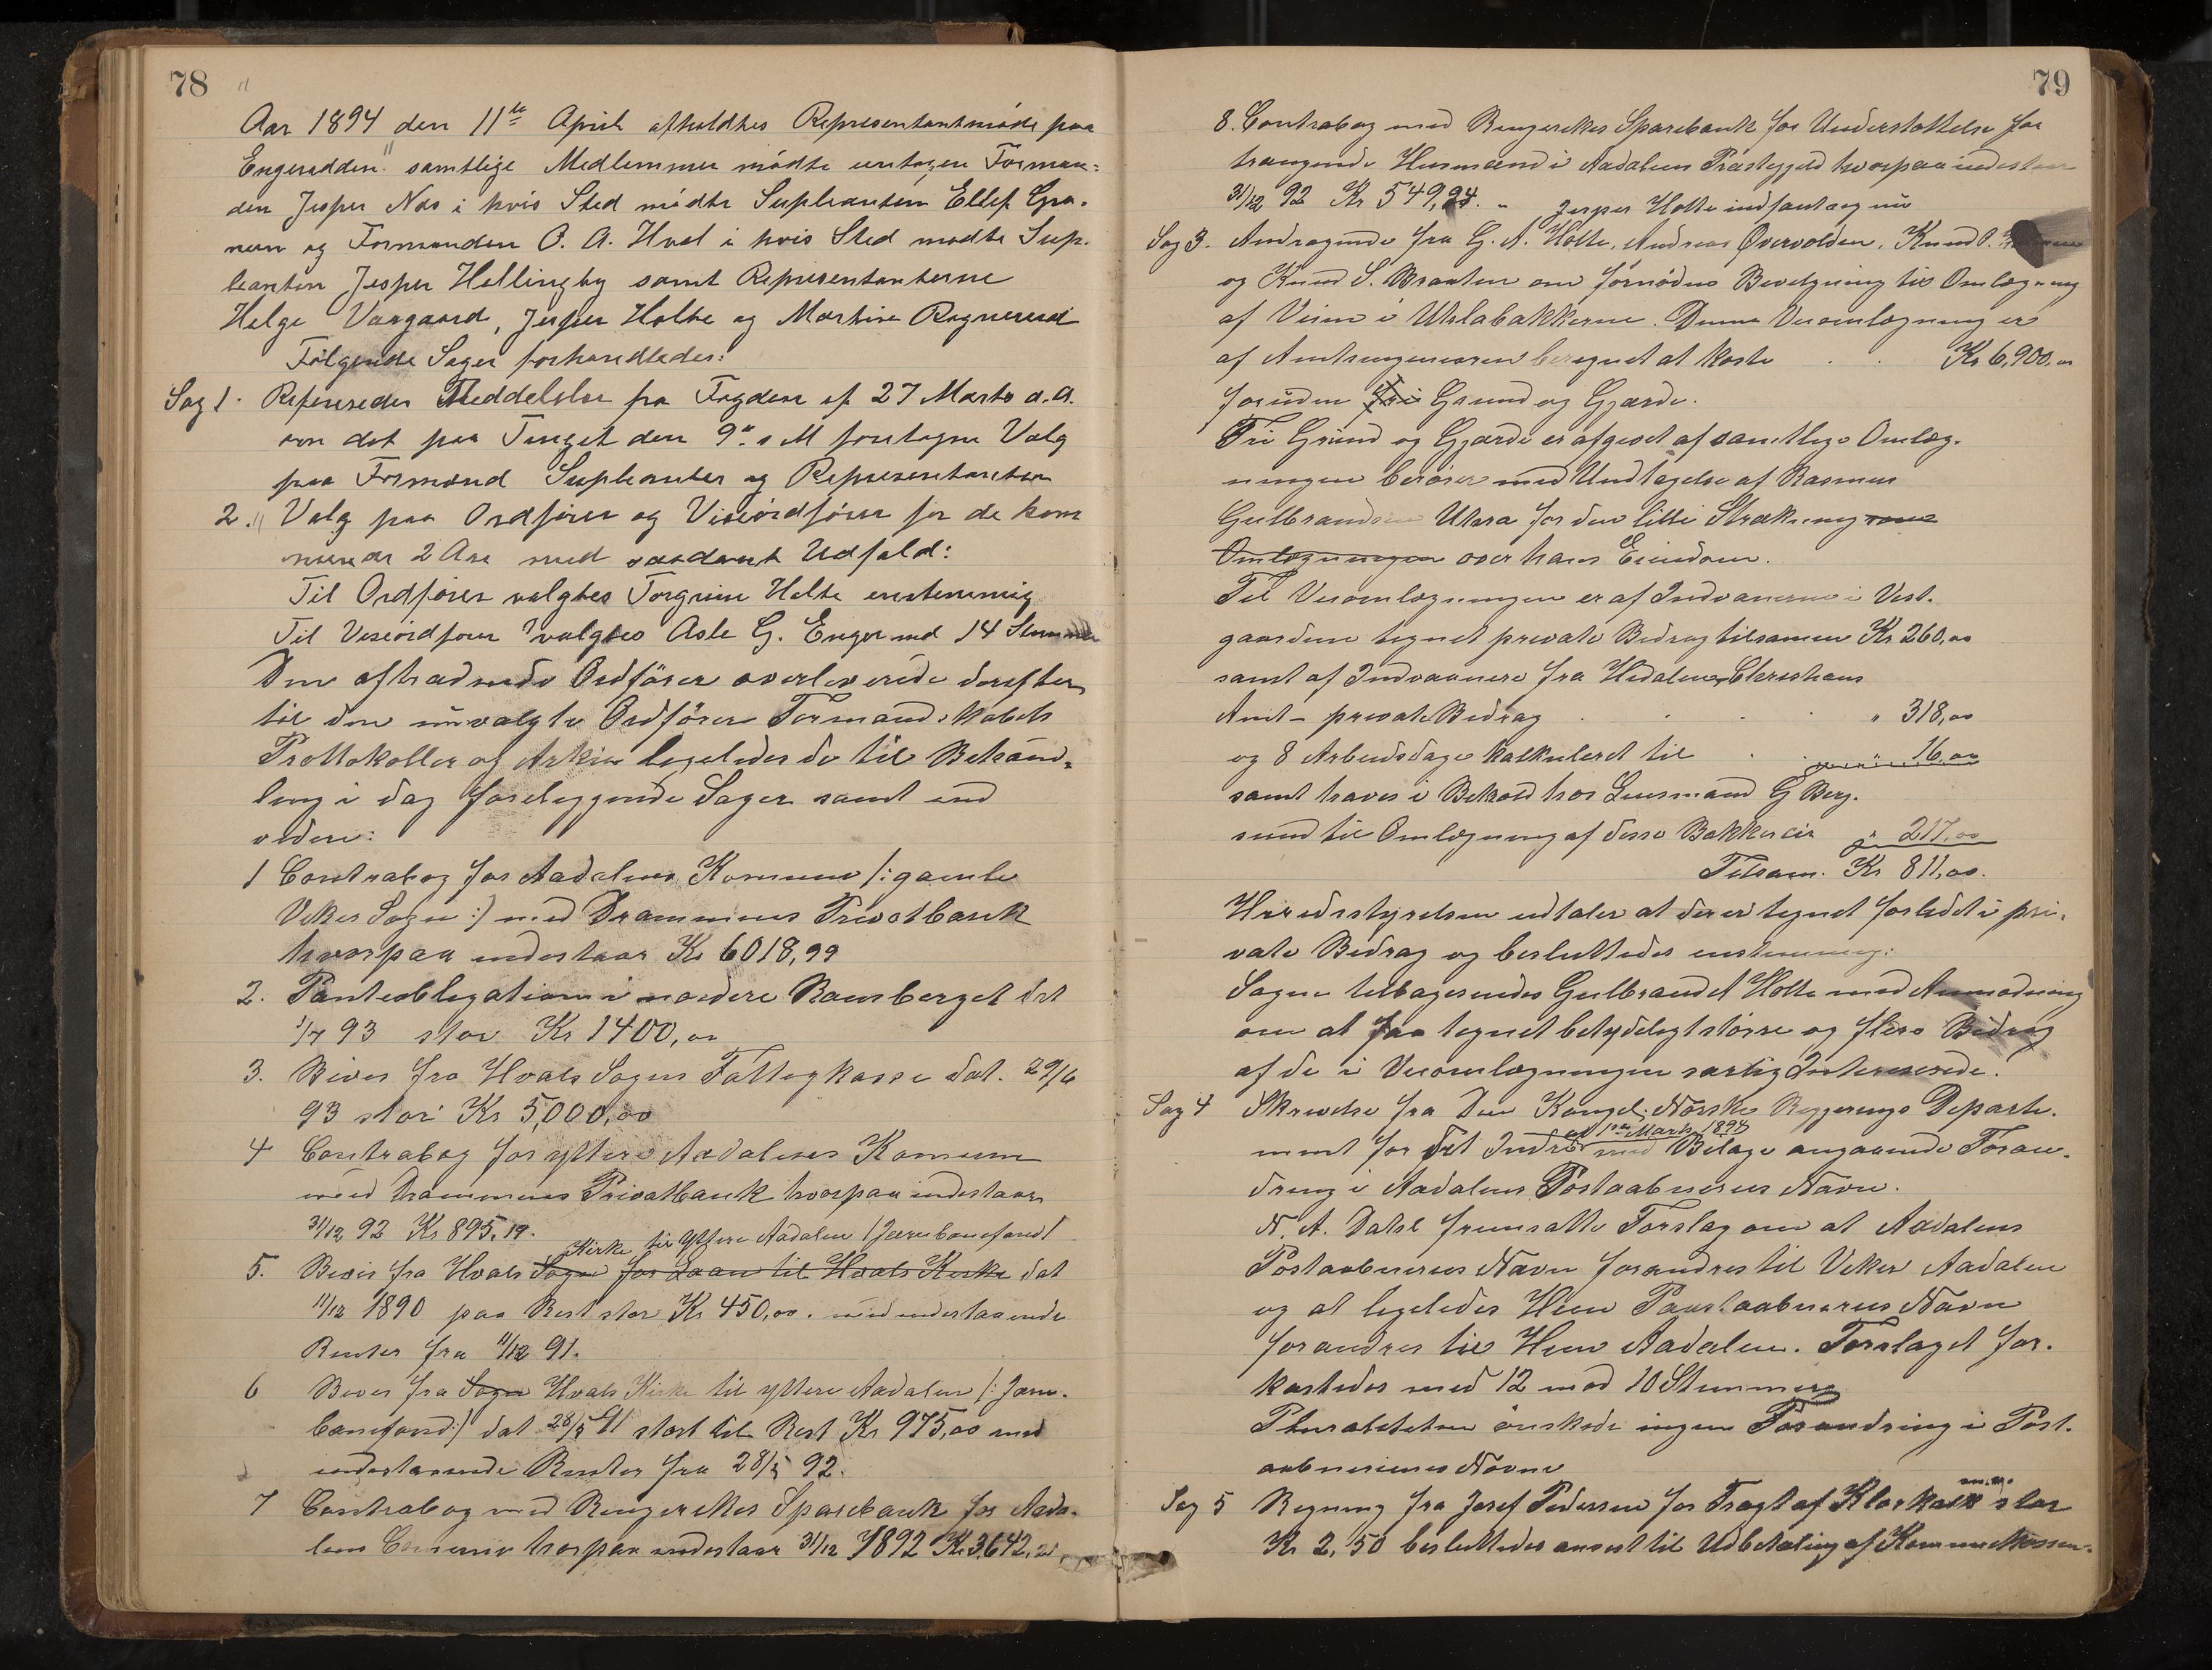 78
Aar 1894 den 11te April afholdtes Representantmøde paa
Engerodden. samtlige Medlemmer mødte untagen Forman=
den Jesper Næs i hvis Sted mødte Supleanten Ellef Gra-
num og Formanden O. A. Hval i hvis Sted mødte Sup-
leanten Jesper Hallingby samt Representanterne
Helge Vargaard, Jesper Holte og Martin Rognerud
Følgende Sager forhandledes:
Sag 1. Refereredes Meddelelse fra Fogden af 27 Marts d.A.
om det paa Tinget den 9. s M foretagne Valg
paa Formænd Supleanter og Representanter
2. Valg paa Ordfører og Viseordfører for de kom
mende 2 Aar med saadant Udfald:
Til Ordfører valgtes Torgrim Holte enstemmig
Til Viseordfører valgtes Asle G. Enger med 14 Stemmer
Den aftrædende Ordfører overleverede derefter
til den nyvalgte Ordfører Formandskabets
Prottokoller og Arkiv ligeledes de til Behand-
ling i dag foreliggende Sager samt end
videre:
1 Contrabog for Aadalens Komune /:gamle
Vikers Sogn:/ med Drammens Privatbank
hvorpaa indestaar Kr 6018,99
2. Panteobligation i nordere Ramberget dat
1/7 93 stor Kr 1400,00
3. Bevis fra Hvals Sogns Fattigkasse dat. 29/6
93 stor Kr 5,000,00
4 Contrabog for ytters Aadalens Komune
med Drammens Privatbank hvorpaa indestaar
31/12 92 Kr 895,19.
Kirke til Yttre Aadalen /Jernbanefond/
5. Bevis fra Hvals Sogn for Laan til Hvals Kirke dat
11/12 1890 paa Rest stor Kr 450,00. med indestaaende
Renter fra 11/12 91.
6 Beves fra Sogn Hvals Kirke til yttere Aadalen /:Jern-
banefond:/ dat 28/5 91 stort til Rest Kr 975,00 med
indestaaende Renter fra 28/5 92.
7 Contrabog med Ringerikes Sparebank for Aada-
lens Comune hvorpaa indestaar 31/12 1892 Kr 3,642,21
79
8. Contrabog med Ringerikes Sparebank for Understøttelse for
trængende Husmænd i Aadalens Præstegjeld hvorpaa indestaar
31/12 92 Kr 549,94. " Jesper Holte indfantes nu
Sag 3. Andragende fra G. A. Holte, Andreas Øvervolden, Knud O.
og Knud S. Braaten om fornøden Bevilgning til Omlægning
af Veien i Uhlabakkerne. Denne Veiomlægning er
af Amtsingeniøren beregnet at koste Kr 6,900,00
foruden fri Grund og Gjærde.
Fri Grund og Gjærde er afgivet af samtlige Omlæg-
ningen berører med Undtagelse af Rasmus
Gulbrandsen Uhlra for den lille Strækning som
Omlægningen over hans Eiendom.
Til Veiomlægningen er af Indvaanerne i Vest-
gaardene tegnet private Bidrag tilsamen Kr 260,00
samt af Indvaanere fra Hedalen, Christians
Amt - private Bidrag " 318,00
og 8 Arbeidsdage kalkuleret til " 16,00
samt haves i Behold hos Lensmand G Berg-
sund til Omlægning af disse Bakker " 217,00
Tilsam. Kr 811,00.
Herredsstyrelsen udtaler at der er tegnet for lidet i pri-
vate Bidrag og besluttedes enstemmig:
Sagen tilbagesendes Gulbrand A Holte med Anmodning
om at faa tegnet betydeligt større og flere Bidrag
af de i Veiomlægningen særlig Interesserede.
Sag 4 Skrivelse fra Den Kongel. Norske Regjerings Departe-
ment for det Indre af 1ste Marts 1894 med Bilage angaaende Foran-
dring i Aadalens Postaabneries Navn.
N. A. Dahl fremsatte Forslag om at Aadalens
Postaabneries Navn forandres til Viker Aadalen
og at ligeledes Hen Postaabneries Navn
forandres til Hen Aadalen. Forslaget for-
kastedes med 12 mod 10 Stemmer
Pluraliteten ønskede ingen Forandring i Post-
aabneriernes Navne
Sag 5 Regning fra Josef Pedersen for Fragt af Klorkalk m.m. stor
Kr 2,50 besluttedes anvist til Udbetaling af Komunekassen.